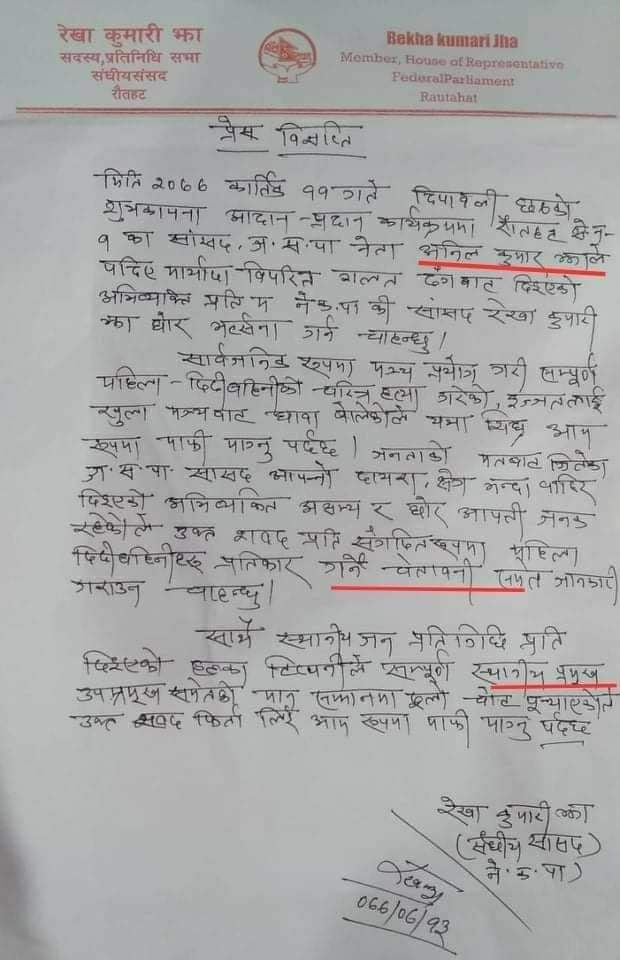 रेखा कुमारी झा
सदस्य,प्रतिनिधि सभा
संघीयसंसद
रौतहट
Rekha kumari Jha
Member, House of Representative
FederalParliament
Rautahat
प्रेस विज्ञप्ति
मिति २०७७ कार्तिक ११ गते दिपावली छठको
शुभकामना आदान-प्रदान कार्यक्रममा रौतहट क्षेत्र-
१ का सांसद, ज.स.पा नेता अनिल कुमार झाले
विपरित गलत ढंगबाट दिइएको
अभिव्यक्ति प्रति म ने.क.पा की सांसद रेखा कुमारी
झा घोर भर्त्सना गर्न चाहन्छु।
सार्वजनिक रूपमा प्रयोग गरी सम्पूर्ण
महिला-दिदीबहिनीको चरित्र हत्या गरेको, इज्जतलाई
खुला धावा बोलेकोले यथा शिघ्र आम
रूपमा माफी माग्नु पर्दछ। जनताको मतबाट जितेका
ज.स.पा. सांसद आफ्नो दायरा, क्षेत्र भन्दा बाहिर
दिइएको अभिव्यक्ति असभ्य र घोर आपती जनक
रहेकोले उक्त शब्द प्रति संगठितरूपमा महिला
दिदीबहिनीहरू प्रतिकार गर्ने चेतावनी समेत जानकारी
गराउन चाहन्छु।
साथै स्थानीय जन प्रतिनिधि प्रति
दिइएको हलका टिप्पनीले सम्पूर्ण स्थानीय प्रमुख
उपप्रमुख समेतको मान सम्मानमा ठूलो चोट पुर्‍याएकोले
उक्त शब्द फिर्ता लिई आम रूपमा माफी माग्नु पर्दछ
रेखा कुमारी झा
(संघीय सांसद)
ने.क.पा)